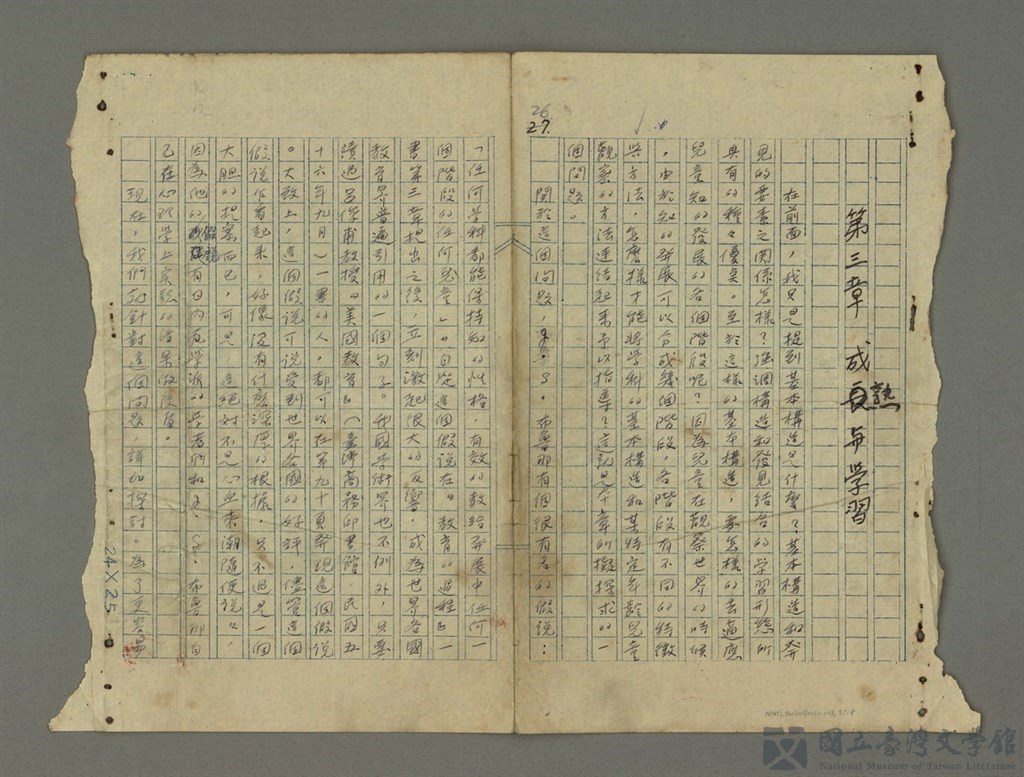 26
27.
第三章 成長熟與學習
在前面，我只是提到基本構造是什麼？基本構造和發
見的要素之關係怎樣？強調構造和發見結合的學習形態所
具有的種々優點。至於這樣的基本構造，要怎樣的去適應
兒童知的發展的各個階段呢？因為兒童在觀察世界的時候
，由於知的發展可以分成幾個階段，各階段有不同的特徵
與方法，怎麼樣才能將學科的基本構造和某特定年齡兒童
觀察的方法連結起來予以指導？這就是本章所擬探求的一
個問題。
關於這個問題，J．S．布魯那有個很有名的假說：
「任何學科都能保持知的性格，有效的教給發展中任何一
個階段的任何兒童」。自從這個假說在「教育的過程」一
書第三章提出之後，立刻激起很大的反響，成為世界各國
教育界普遍引用的一個句子。我國學術界也不例外，只要
讀過呂俊甫教授「美國教育」（臺灣商務印書館 民國五
十六年九月）一書的人，都可以在第九十頁發現這個假說
。大致上，這個假說可說受到世界各國的好評，儘管這個
假說乍看起來，好像沒有什麼深厚的根據，只不過是一個
大胆的提案而已，可是，這絕對不是心血來潮隨便說的，
因為他的假說有日內瓦學派的學者們和J．S．布魯那自
己在心理學上實驗的結果做後盾。
現在，我們就針對這個問題，詳加探討。為了更容易
24×25
國立臺灣文學館
National Museum of Taiwan Literature